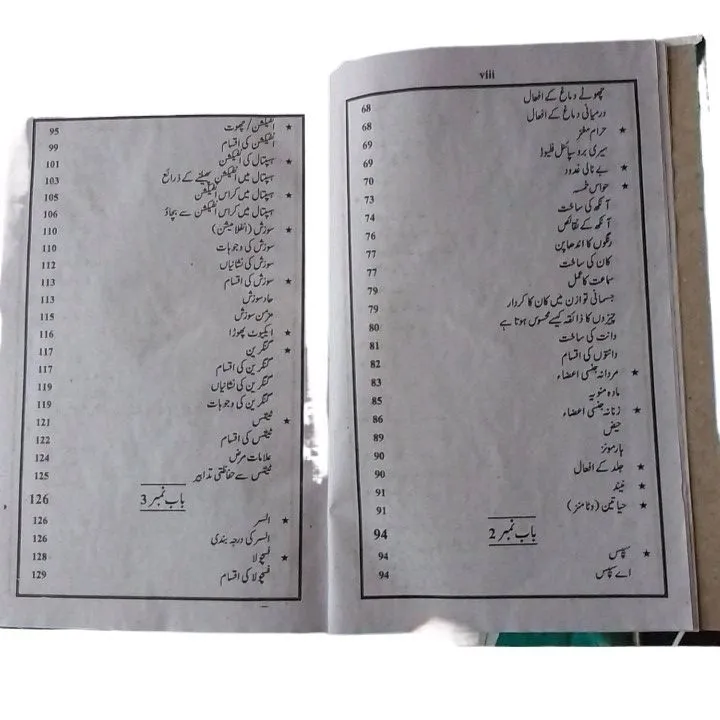 viii
چھوٹے دماغ کے افعال 68
درمیانی دماغ کے افعال 68
★ حرام مغز 69
سیری بروسپائنل فلیوڈ 69
★ بے نالی غدود 70
★ حواس خمسہ 73
آنکھ کی ساخت 74
آنکھ کے نقائص 76
رنگوں کا اندھا پن 77
کان کی ساخت 77
سماعت کا عمل 79
جسمانی توازن میں کان کا کردار 79
چیزوں کا ذائقہ کیسے محسوس ہوتا ہے 80
دانت کی ساخت 81
دانتوں کی اقسام 82
★ مردانہ جنسی اعضاء 83
مادہ منویہ 85
★ زنانہ جنسی اعضاء 86
حیض 89
ہارمونز 90
★ جلد کے افعال 90
★ نیند 91
★ حیاتین (وٹامنز) 91
باب نمبر 2 94
★ سپسس 94
اے سپسس 94
★ انفیکشن / چھوت 95
انفیکشن کی اقسام 99
★ ہسپتال کی انفیکشن 101
ہسپتال میں انفیکشن پھیلنے کے ذرائع 103
★ ہسپتال میں کراس انفیکشن 105
ہسپتال میں کراس انفیکشن سے بچاؤ 106
★ سوزش (انفلامیشن) 110
سوزش کی وجوہات 110
سوزش کی نشانیاں 112
★ سوزش کی اقسام 113
حاد سوزش 113
مزمن سوزش 115
★ ایکیوٹ پھوڑا 116
★ گنگرین 117
گنگرین کی اقسام 117
گنگرین کی نشانیاں 119
گنگرین کی وجوہات 119
★ ٹیٹنس 121
ٹیٹنس کی اقسام 122
علامات مرض 124
ٹیٹنس سے حفاظتی تدابیر 125
باب نمبر 3 126
★ السر 126
السر کی درجہ بندی 126
★ فسچولا 128
فسچولا کی اقسام 129